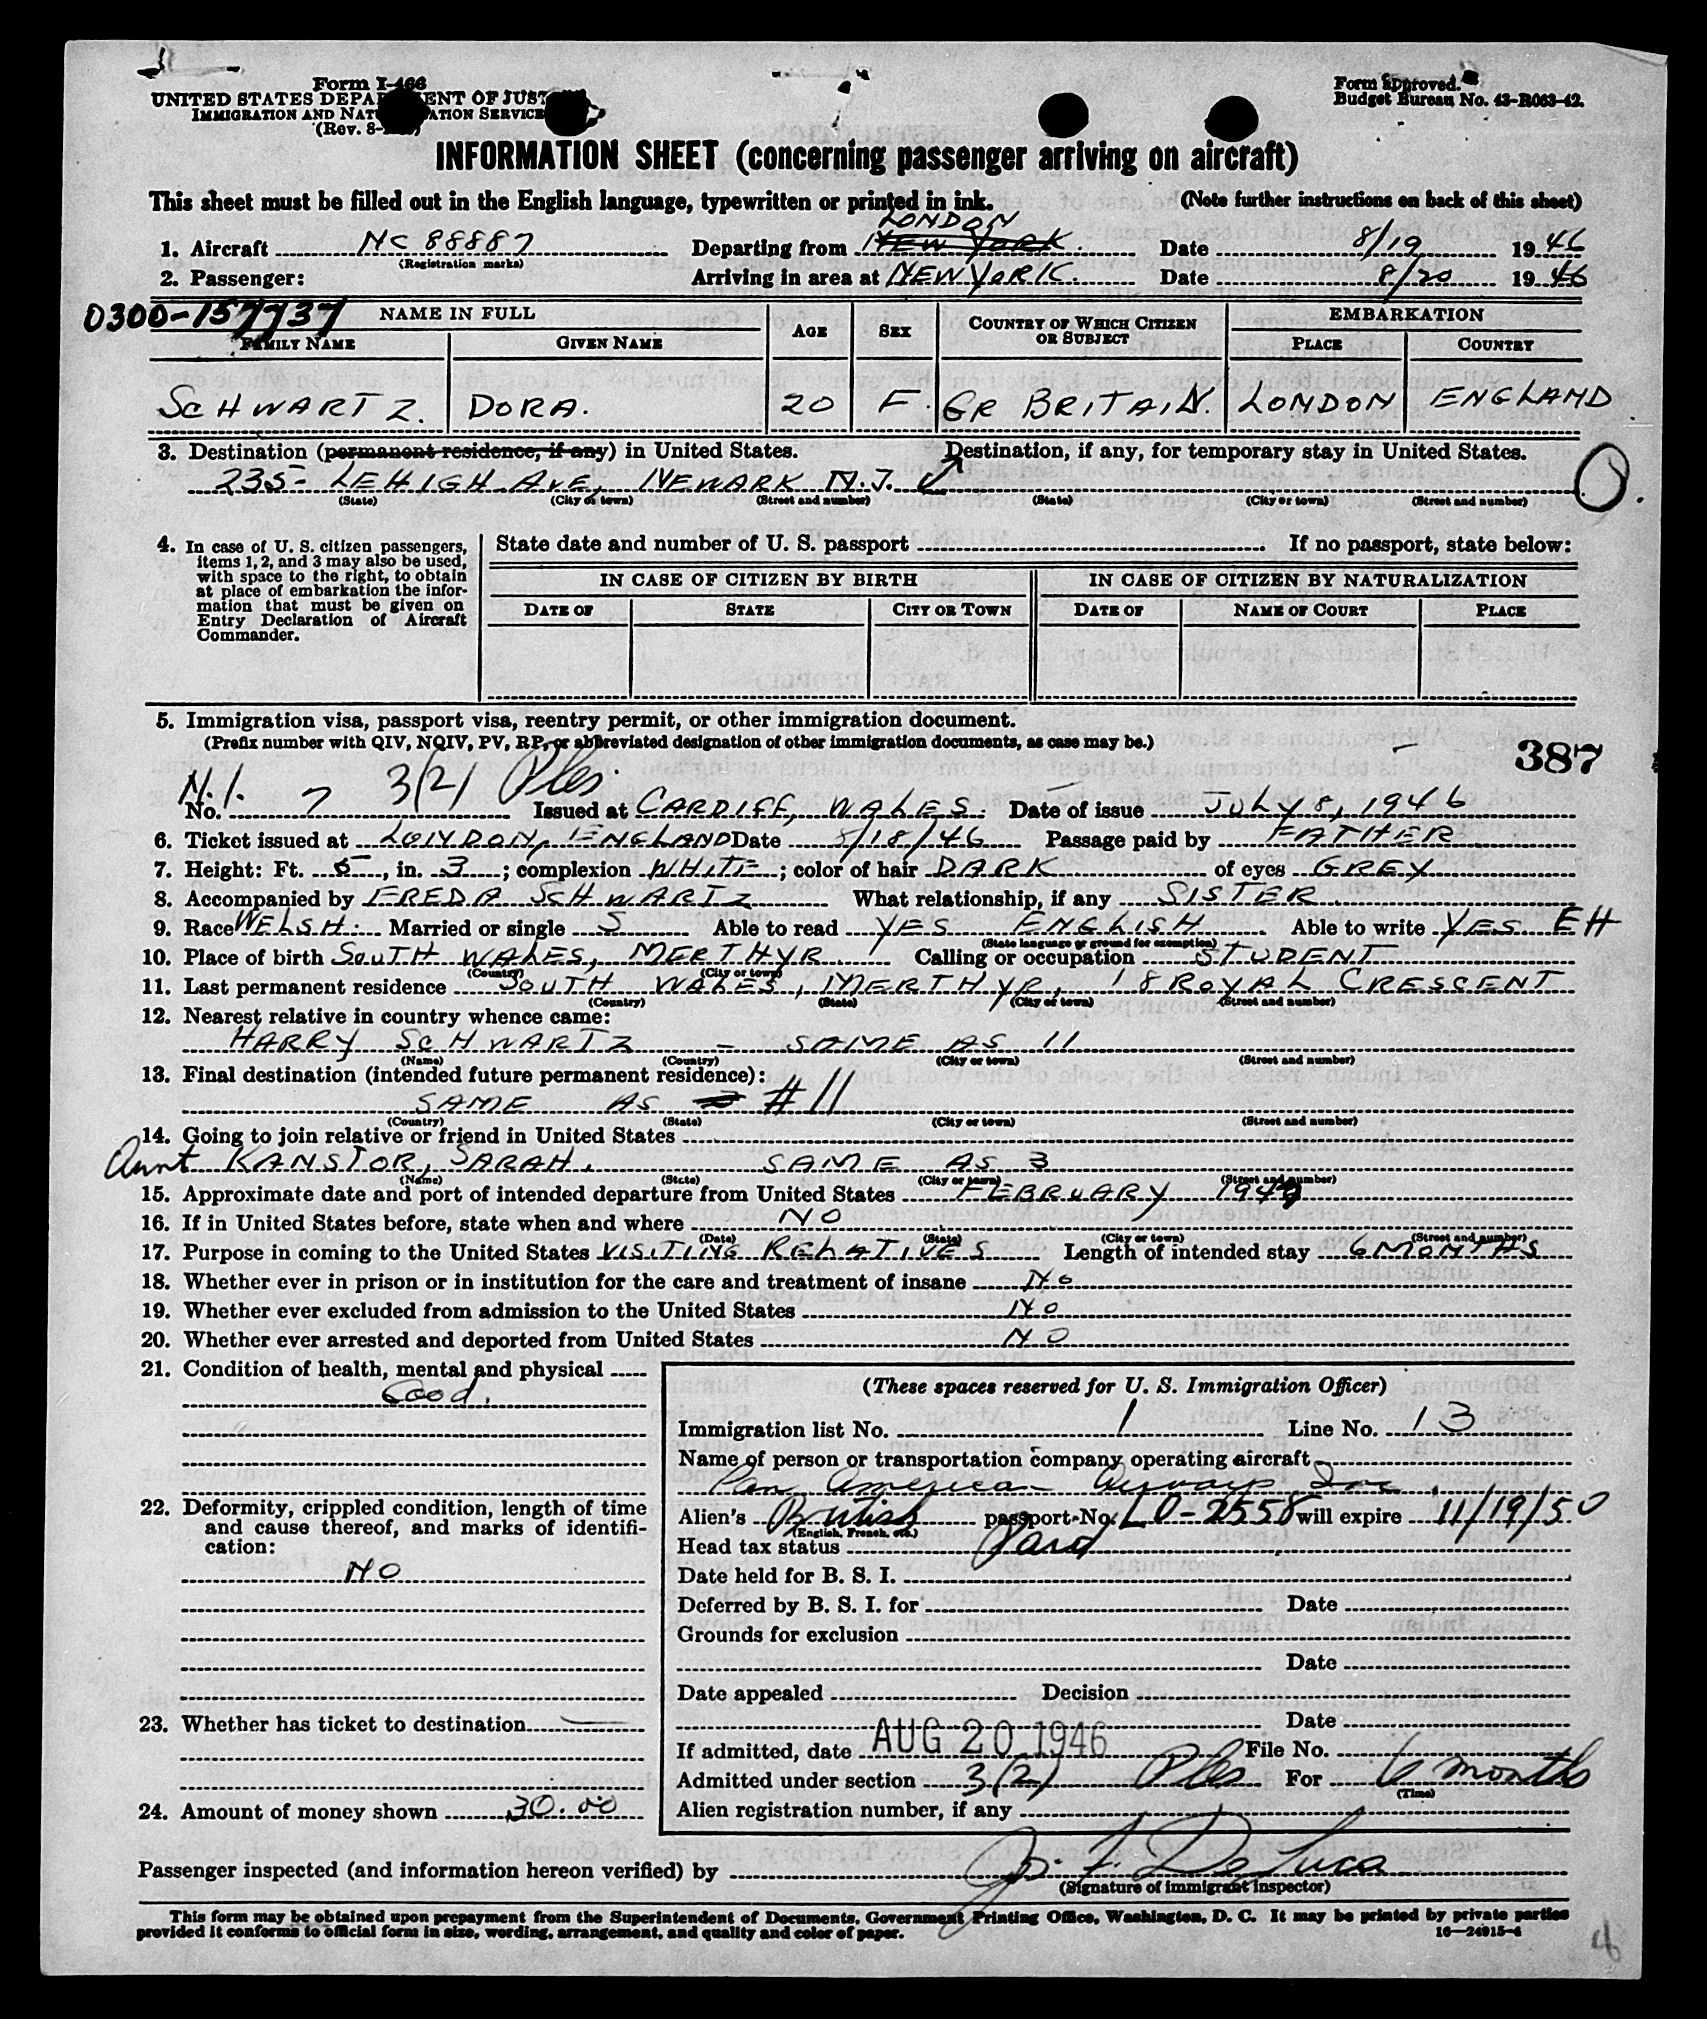 Form I-466
UNITED STATES DEPARTMENT OF JUSTICE
IMMIGRATION AND NATURALIZATION SERVICE
(Rev. 8-
Form approved.
Budget Bureau No. 43-R063-42.
INFORMATION SHEET (concerning passenger arriving on aircraft)
This sheet must be filled out in the English language, typewritten or printed in ink. (Note further instructions on back of this sheet)
LONDON
1. Aircraft NC 88887 Departing from NEW YORK. Date 8/19 1946
(Registration marks)
2. Passenger: Arriving in area at NEW YORK. Date 8/20 1946
0300-157737 NAME IN FULL AGE SEX COUNTRY OF WHICH CITIZEN OR SUBJECT EMBARKATION
FAMILY NAME GIVEN NAME PLACE COUNTRY
SCHWARTZ. DORA. 20 F. GR BRITAIN. LONDON ENGLAND
3. Destination (permanent residence, if any) in United States. Destination, if any, for temporary stay in United States.
235 LEHIGH AVE, NEWARK N.J.
(State) (City or town) (Street and number) (State) (City or town) (Street and number)
4. In case of U. S. citizen passengers,
items 1, 2, and 3 may also be used,
with space to the right, to obtain
at place of embarkation the infor-
mation that must be given on
Entry Declaration of Aircraft
Commander.
State date and number of U. S. passport If no passport, state below:
IN CASE OF CITIZEN BY BIRTH IN CASE OF CITIZEN BY NATURALIZATION
DATE OF STATE CITY OR TOWN DATE OF NAME OF COURT PLACE
5. Immigration visa, passport visa, reentry permit, or other immigration document.
(Prefix number with QIV, NQIV, PV, RP, or abbreviated designation of other immigration documents, as case may be.)
387
N.I. 3(2) Ples.
No. 7 Issued at CARDIFF, WALES. Date of issue JULY 8, 1946
6. Ticket issued at LONDON, ENGLAND Date 8/18/46 Passage paid by FATHER
7. Height: Ft. 5, in. 3; complexion WHITE; color of hair DARK of eyes GREY
8. Accompanied by FREDA SCHWARTZ What relationship, if any SISTER
9. Race WELSH. Married or single S Able to read YES ENGLISH Able to write YES EH
(State language or ground for exemption)
10. Place of birth SOUTH WALES, MERTHYR Calling or occupation STUDENT
(Country) (City or town)
11. Last permanent residence SOUTH WALES, MERTHYR, 18 ROYAL CRESCENT
(Country) (State) (City or town) (Street and number)
12. Nearest relative in country whence came:
HARRY SCHWARTZ - SAME AS 11
(Name) (Country) (City or town) (Street and number)
13. Final destination (intended future permanent residence):
SAME AS 3 #11
(Country) (State) (City or town) (Street and number)
14. Going to join relative or friend in United States
Aunt KANSTOR, SARAH, SAME AS 3
(Name) (State) (City or town) (Street and number)
15. Approximate date and port of intended departure from United States FEBRUARY 1947
16. If in United States before, state when and where NO
(Date) (State) (City or town) (Street and number)
17. Purpose in coming to the United States VISITING RELATIVES Length of intended stay 6 MONTHS
18. Whether ever in prison or in institution for the care and treatment of insane No
19. Whether ever excluded from admission to the United States No
20. Whether ever arrested and deported from United States NO
21. Condition of health, mental and physical
Good.
22. Deformity, crippled condition, length of time
and cause thereof, and marks of identifi-
cation:
NO
23. Whether has ticket to destination
24. Amount of money shown 30.00
(These spaces reserved for U. S. Immigration Officer)
Immigration list No. 1 Line No. 13
Name of person or transportation company operating aircraft
Pan American Airways Inc.
Alien's British passport No. LO-2558 will expire 11/19/50
(English, French, etc.)
Head tax status Paid
Date held for B. S. I.
Deferred by B. S. I. for Date
Grounds for exclusion
Date
Date appealed Decision
Date
If admitted, date AUG 20 1946 File No.
Admitted under section 3(2) Ples For 6 months
(Time)
Alien registration number, if any
Passenger inspected (and information hereon verified) by J. F. DeLuca
(Signature of immigrant inspector)
This form may be obtained upon prepayment from the Superintendent of Documents, Government Printing Office, Washington, D. C. It may be printed by private parties
provided it conforms to official form in size, wording, arrangement, and quality and color of paper. 16—24915-4